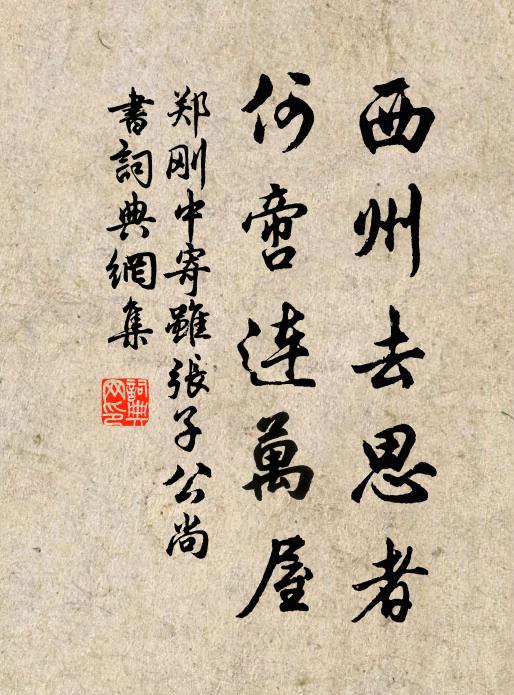 西州去思者
何啻连萬屋
郑刚中寄雖張子公尚
書詞典網集
詞典网印